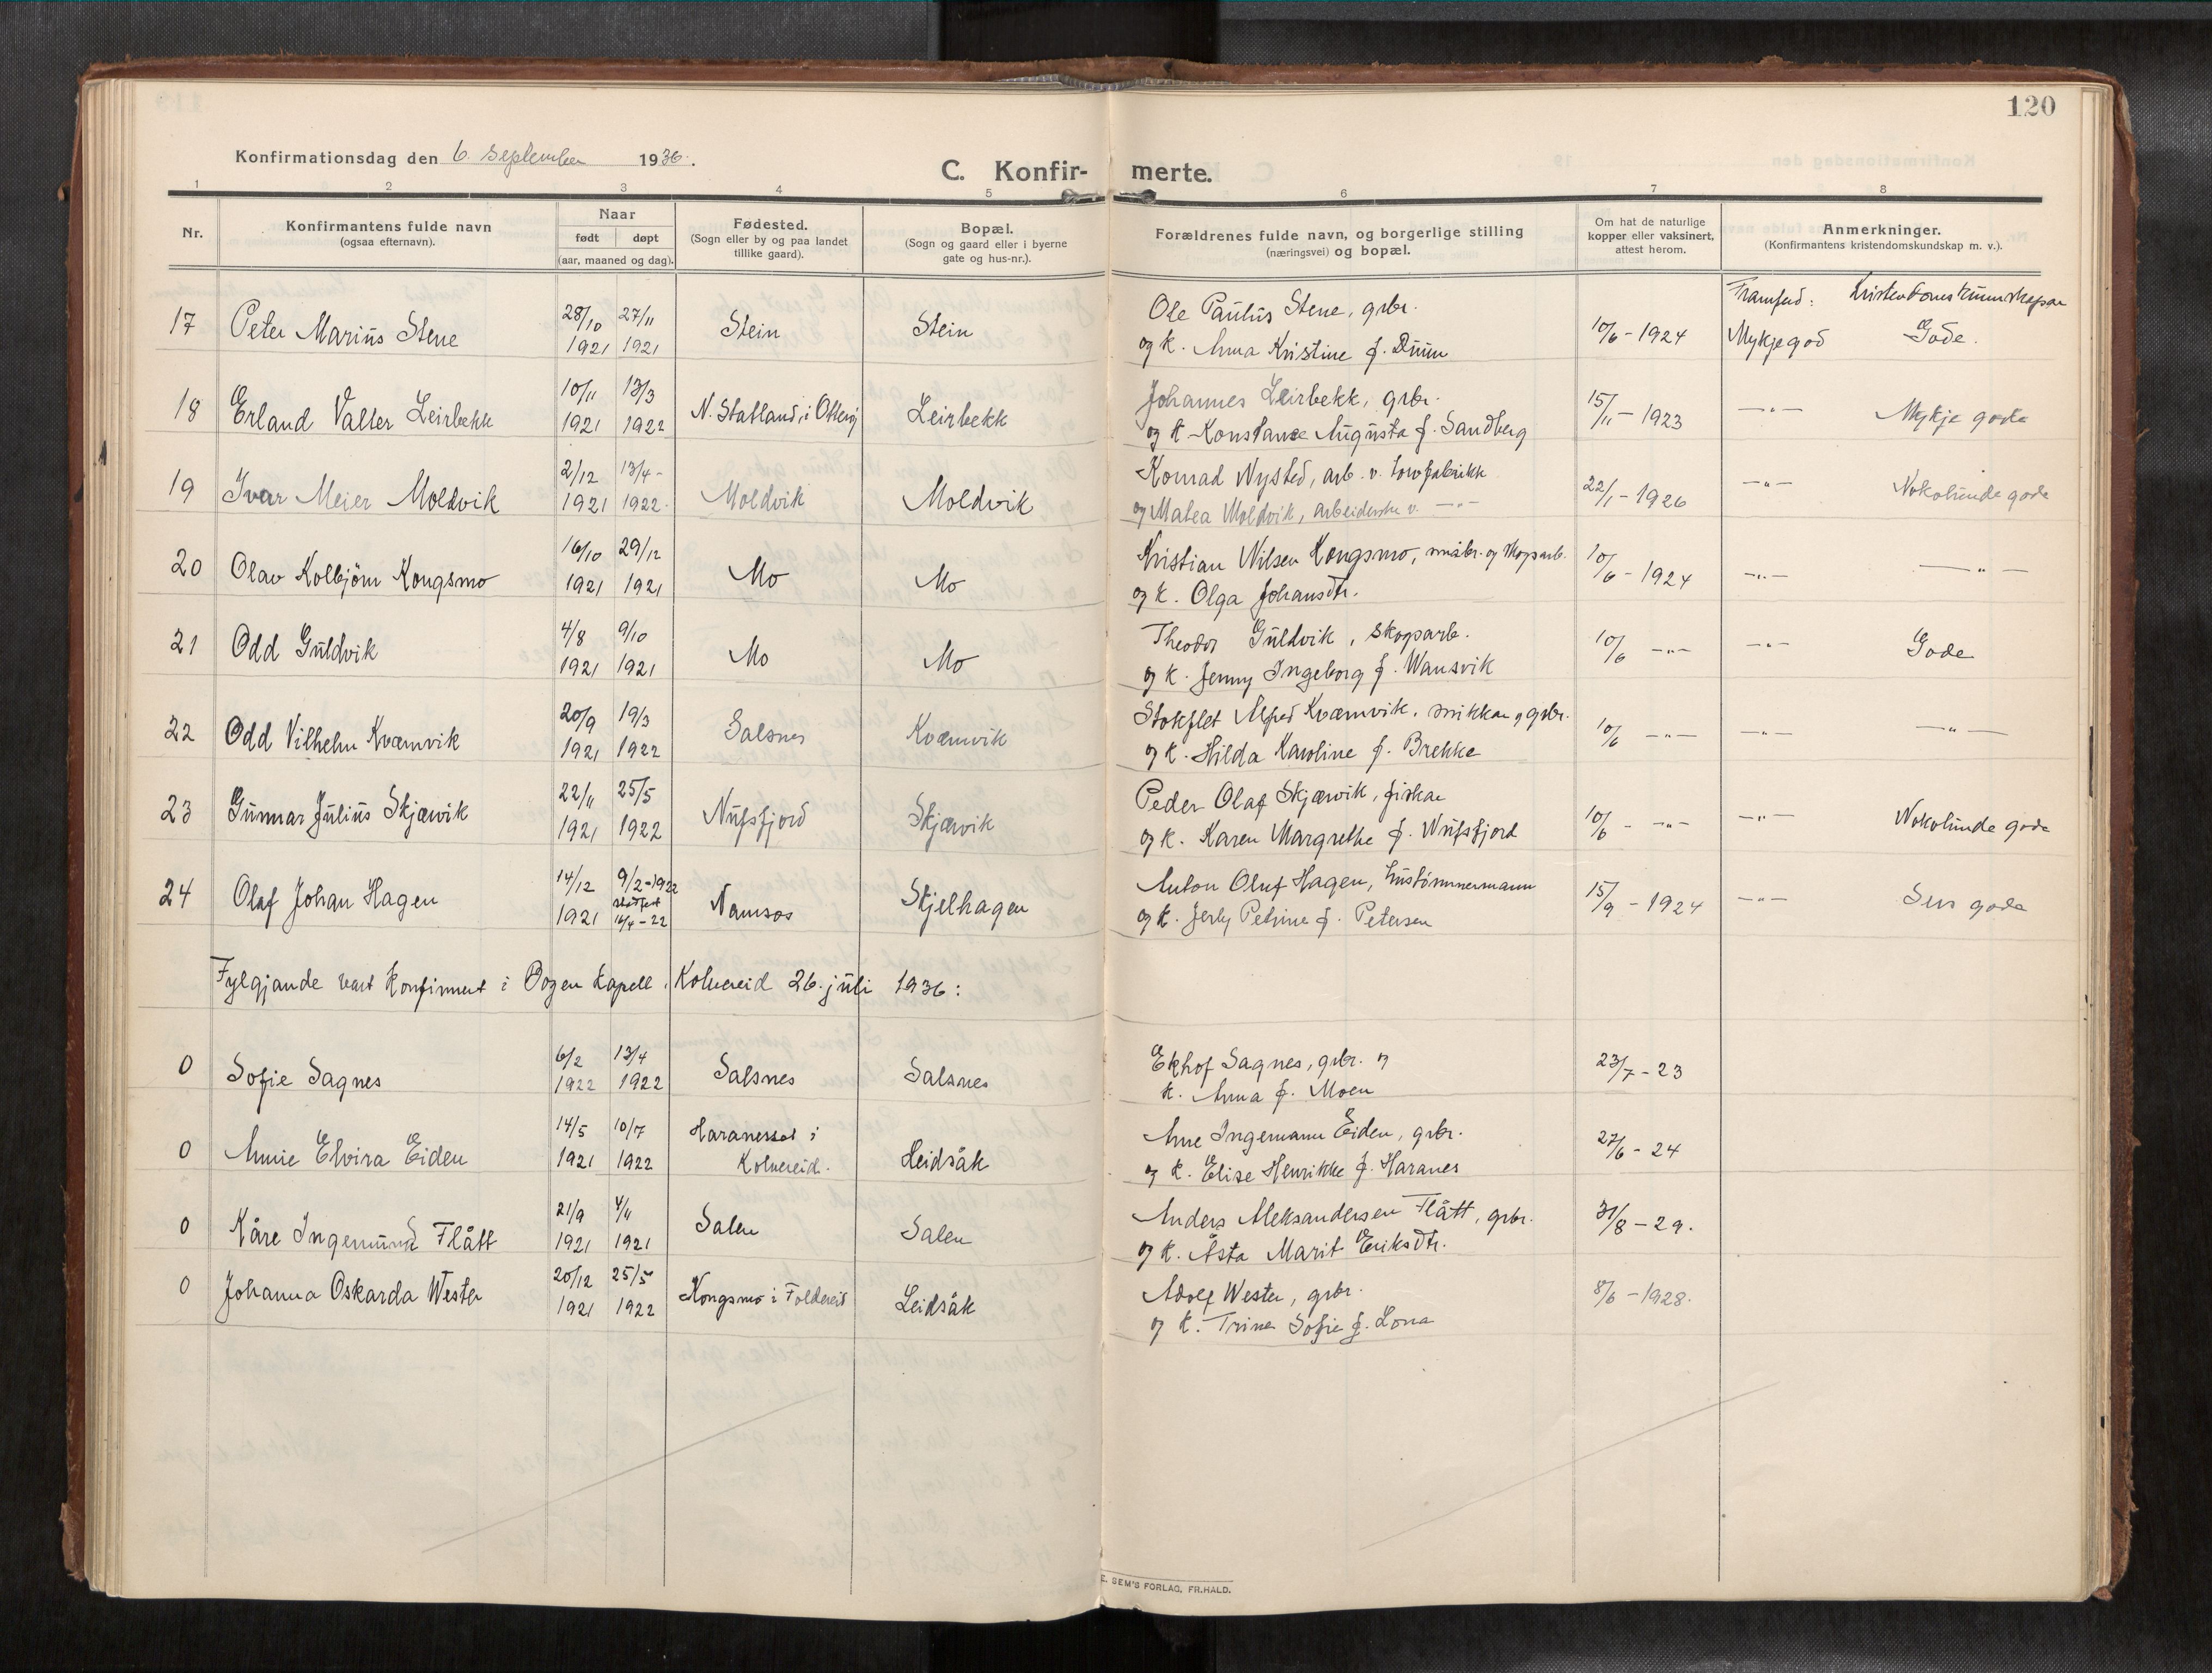 120
Konfirmationsdag den 6. September 1936.
C. Konfir- merte.
1 2 3 4 5 6 7 8
Nr.
Konfirmantens fulde navn
(ogsaa efternavn).
Naar
født døpt
(aar, maaned og dag).
Fødested.
(Sogn eller by og paa landet
tillike gaard).
Bopæl.
(Sogn og gaard eller i byerne
gate og hus-nr.).
Forældrenes fulde navn, og borgerlige stilling
(næringsvei) og bopæl.
Om hat de naturlige
kopper eller vaksinert,
attest herom.
Anmerkninger.
(Konfirmantens kristendomskundskap m. v.).
Framferd: Kristendomskunnskapen
17 Peter Marius Stene
28/10 27/11
1921 1921
Stein
Stein
Ole Paulus Stene, grbr.
og k. Anna Kristine f. Duun
10/6 - 1924
Mykje god
Gode.
18 Erland Valter Leirbekk
10/11 13/3
1921 1922
N. Statland, i Otterøy
Leirbekk
Johannes Leirbekk, grbr.
og k Konstanse Augusta f. Sandberg
15/11 - 1923
—"—
Mykje gode
19 Ivar Meier Moldvik
2/12 13/4 -
1921 1922.
Moldvik
Moldvik
Konrad Nysted, arb. v. towfabrikk
og Matea Moldvik, arbeiderske v. —"—
22/1 - 1926
—"—
Nokolunde gode
20 Olav Kolbjørn Kongsmo
16/10 29/12
1921 1921
Mo
Mo
Kristian Nilsen Kongsmo, småbr. og skogsarb.
og k. Olga Johansdtr.
10/6 - 1924
—"—
—"—
21 Odd Guldvik
4/8 9/10
1921 1921
Mo
Mo
Theodor Guldvik, skogsarb.
og k. Jenny Ingeborg f. Wansvik
10/6 —"—
—"—
Gode
22 Odd Vilhelm Kvæmvik
20/9 19/3
1921 1922
Salsnes
Kvæmvik
Stokflet Alfred Kvæmvik, snikkar og grbr.
og k. Hilda Karoline f. Brekke
10/6 —"—
—"—
—"—
23 Gunnar Julius Skjærvik
22/11 25/5
1921 1922
Nufsfjord
Skjærvik
Peder Olaf Skjærvik, fiskar
og k. Karen Margrethe f. Nufsfjord
10/6 - —"—
—"—
Nokolunde gode
24 Olaf Johan Hagen
14/12 9/2-1922
stadfest
1921 16/4 - 22
Namsos
Skjelhagen
Anton Oluf Hagen, hustømmermann
og k. Petrine f. Petersen
15/9 - 1924
—"—
Sers gode
Fylgjande vart konfirmert i Bogen kapell, Kolvereid 26. juli 1936:
0 Sofie Sagnes
6/2 13/4
1922 1922
Salsnes
Salsnes
Ekhof Sagnes, grbr. og
k. Anna f. Moen
23/7 - 23
0 Annie Elvira Eiden
14/5 10/7
1921 1922
Haranesset i
Kolvereid.
Heidsåk
Arne Ingemann Eiden, grbr.
og k. Elise Henrikke f. Haranes
27/6 - 24
0 Kåre Ingemund Flått
21/9 4/11
1921 1921
Salen
Salen
Anders Aleksandersen Flått, grbr.
og k. Åsta Marit Eriksdtr.
31/8 - 29.
0 Johanna Oskarda Wester
20/12 25/5
1921 1922
Kongsmo i Foldereid
Leidsåk
Adolf Wester, grbr.
og k. Trine Sofie f. Lona
8/6 - 1928.
E. SEM'S FORLAG, FR.HALD.